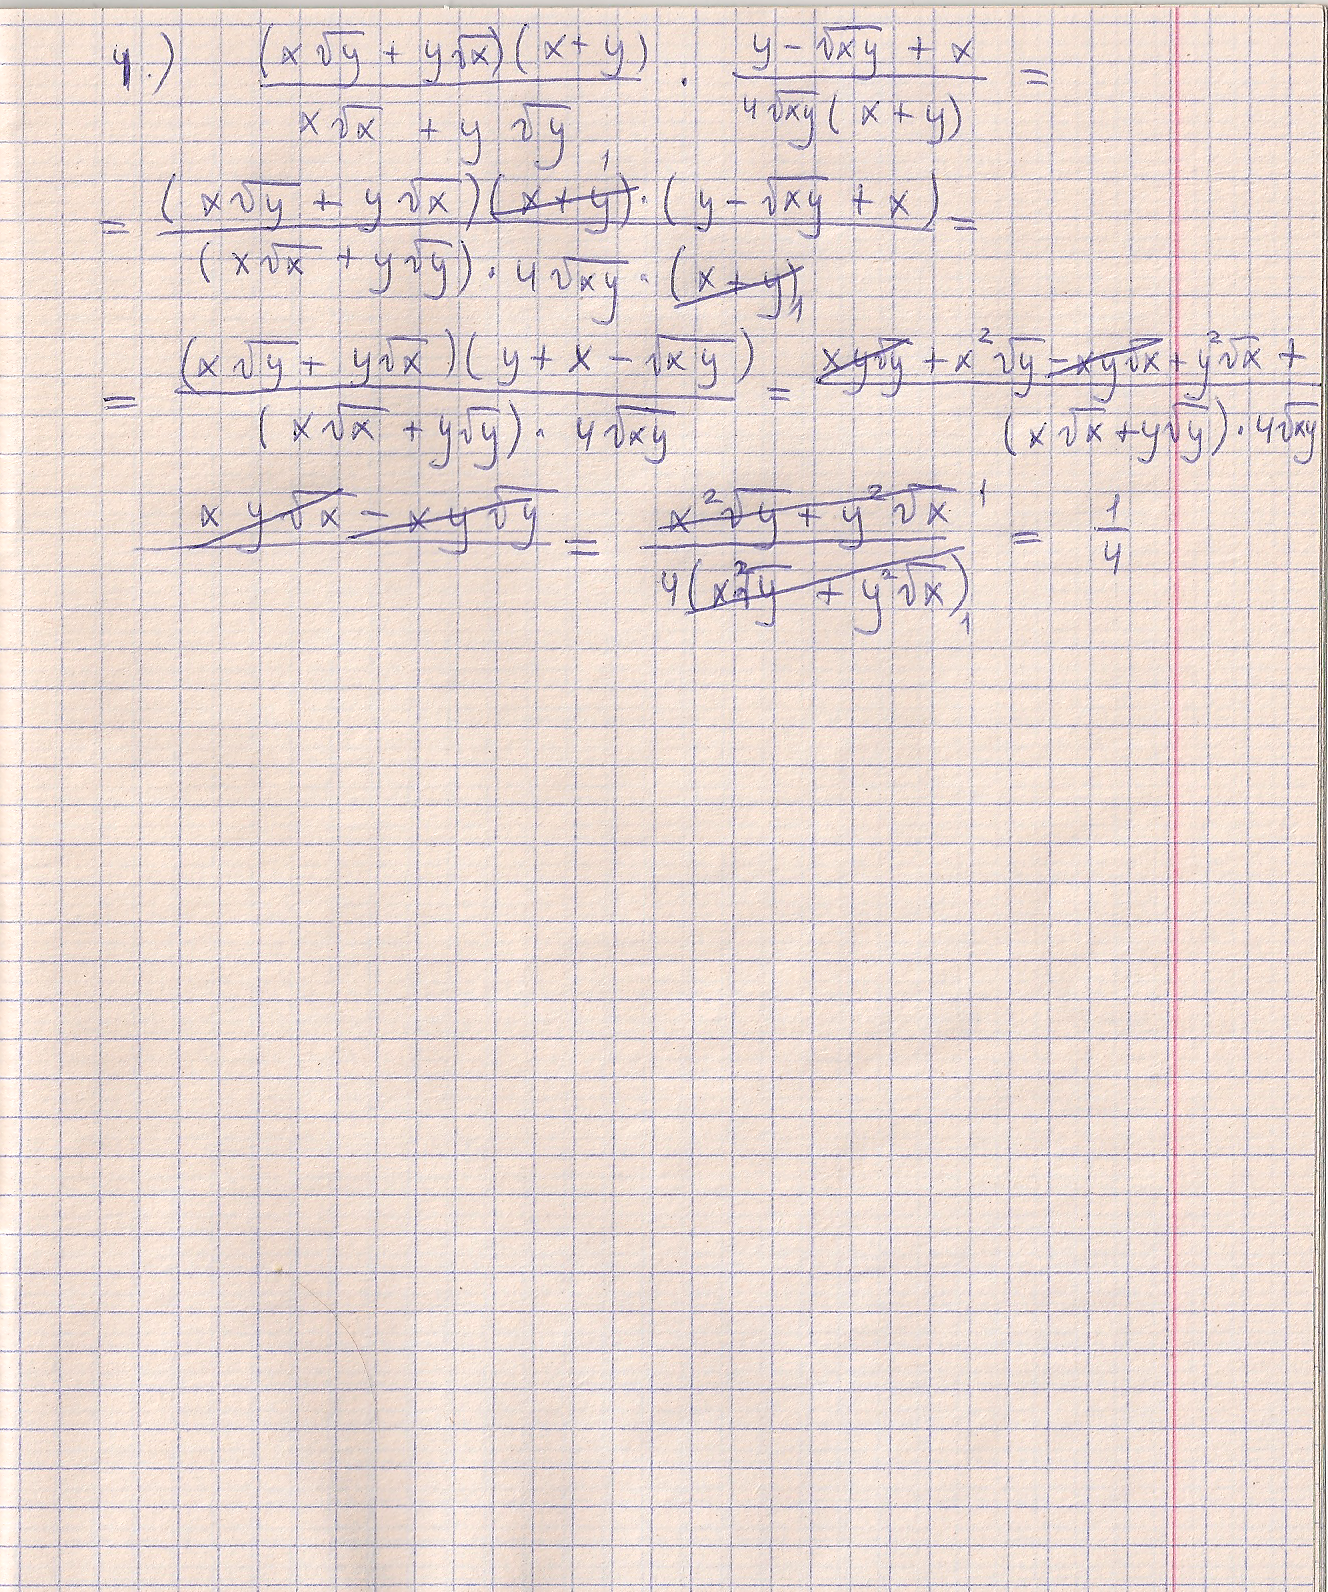 4.) (x√y + y√x)(x+y) / (x√x + y√y) · (y - √xy + x) / (4√xy(x+y)) =
= (x√y + y√x)(x+y)¹ · (y - √xy + x) / ((x√x + y√y) · 4√xy · (x+y)₁) =
= (x√y + y√x)(y + x - √xy) / ((x√x + y√y) · 4√xy) = xy√y + x²√y - xy√x + y²√x + / (x√x + y√y) · 4√xy
xy√x - xy√y = x²√y + y²√x ¹ / 4(x²√y + y²√x)₁ = 1/4